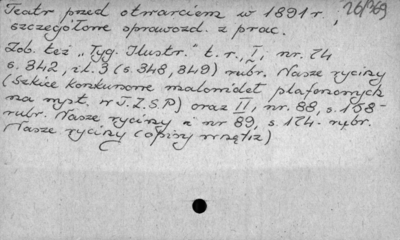 Teatr przed otwarciem w 1891 r., 26/369
szczegółowe sprawozd. z prac.
Zob. też "Tyg. Ilustr." t. r., I, nr. 74
s. 342, il. 3 (s. 348, 349) rubr. Nasze ryciny
(szkice konkursowe malowideł plafonowych
na wyst. w T.Z.S.P.) oraz II, nr. 88, s. 158-
rubr. Nasze ryciny i nr 89, s. 174- rubr.
Nasze ryciny (opisy wnętrz)